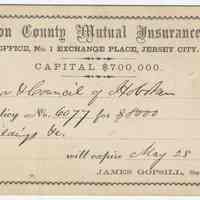 on County Mutual Insurance
OFFICE, No. 1 EXCHANGE PLACE, JERSEY CITY.
CAPITAL $700,000.
r & Council of Hoboken
icy No. 6077 for $8000
dings &c.
will expire May 28
JAMES GOPSILL, Se